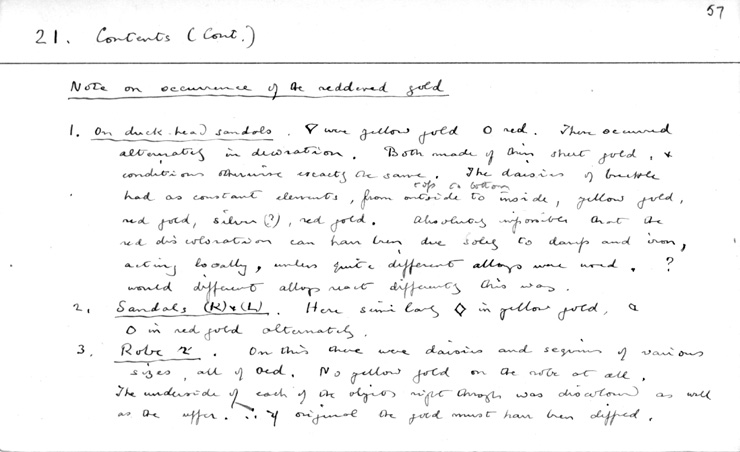 57
21. Contents (Cont.)
Note on occurrence of the reddened gold
1. On duck-head sandals. ▽ were yellow gold O red. These occurred
alternately in decoration. Both made of thin sheet gold, &
conditions otherwise exactly the same. The daisies of buckle
top to bottom
had as constant elements, from outside to inside, yellow gold,
red gold, silver (?), red gold. Absolutely impossible that the
red discoloration can have been due solely to damp and iron,
acting locally, unless quite different alloys were used. ?
would different alloys react differently this way.
2. Sandals (K) & (L). Here similarly ◇ in yellow gold, &
O in red gold alternately.
3. Robe . On this there were daisies and sequins of various
sizes, all of red. No yellow gold on the robe at all.
The underside of each of the objects right through was discolour as well
as the upper. ∴ if original the gold must have been dipped.